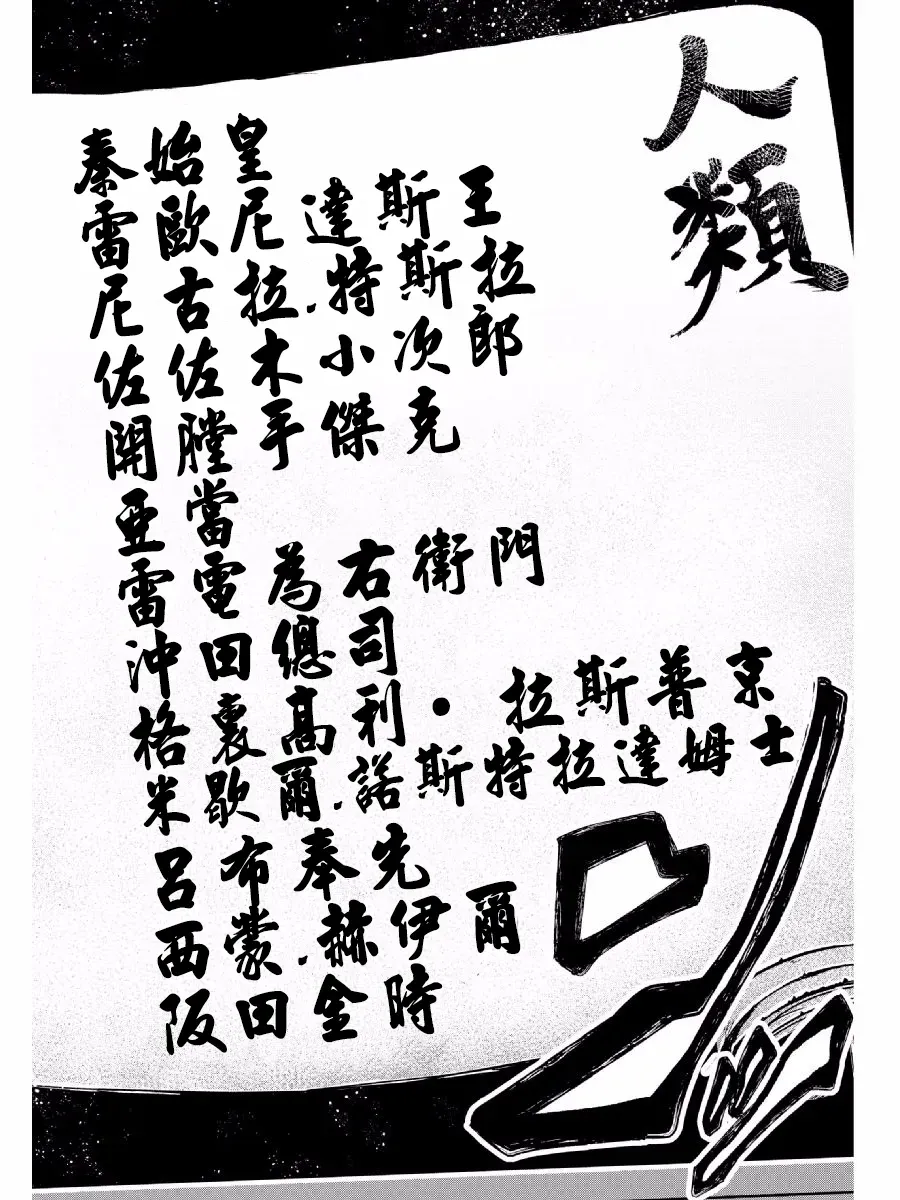 人類
秦始皇
雷歐尼達斯王
尼古拉.特斯拉
佐佐木小次郎
開膛手傑克
亞當
雷電為右衛門
沖田總司
格裏高利•拉斯普京
米歇爾.諾斯特拉達姆士
呂布奉先
西蒙.赫伊爾
阪田金時